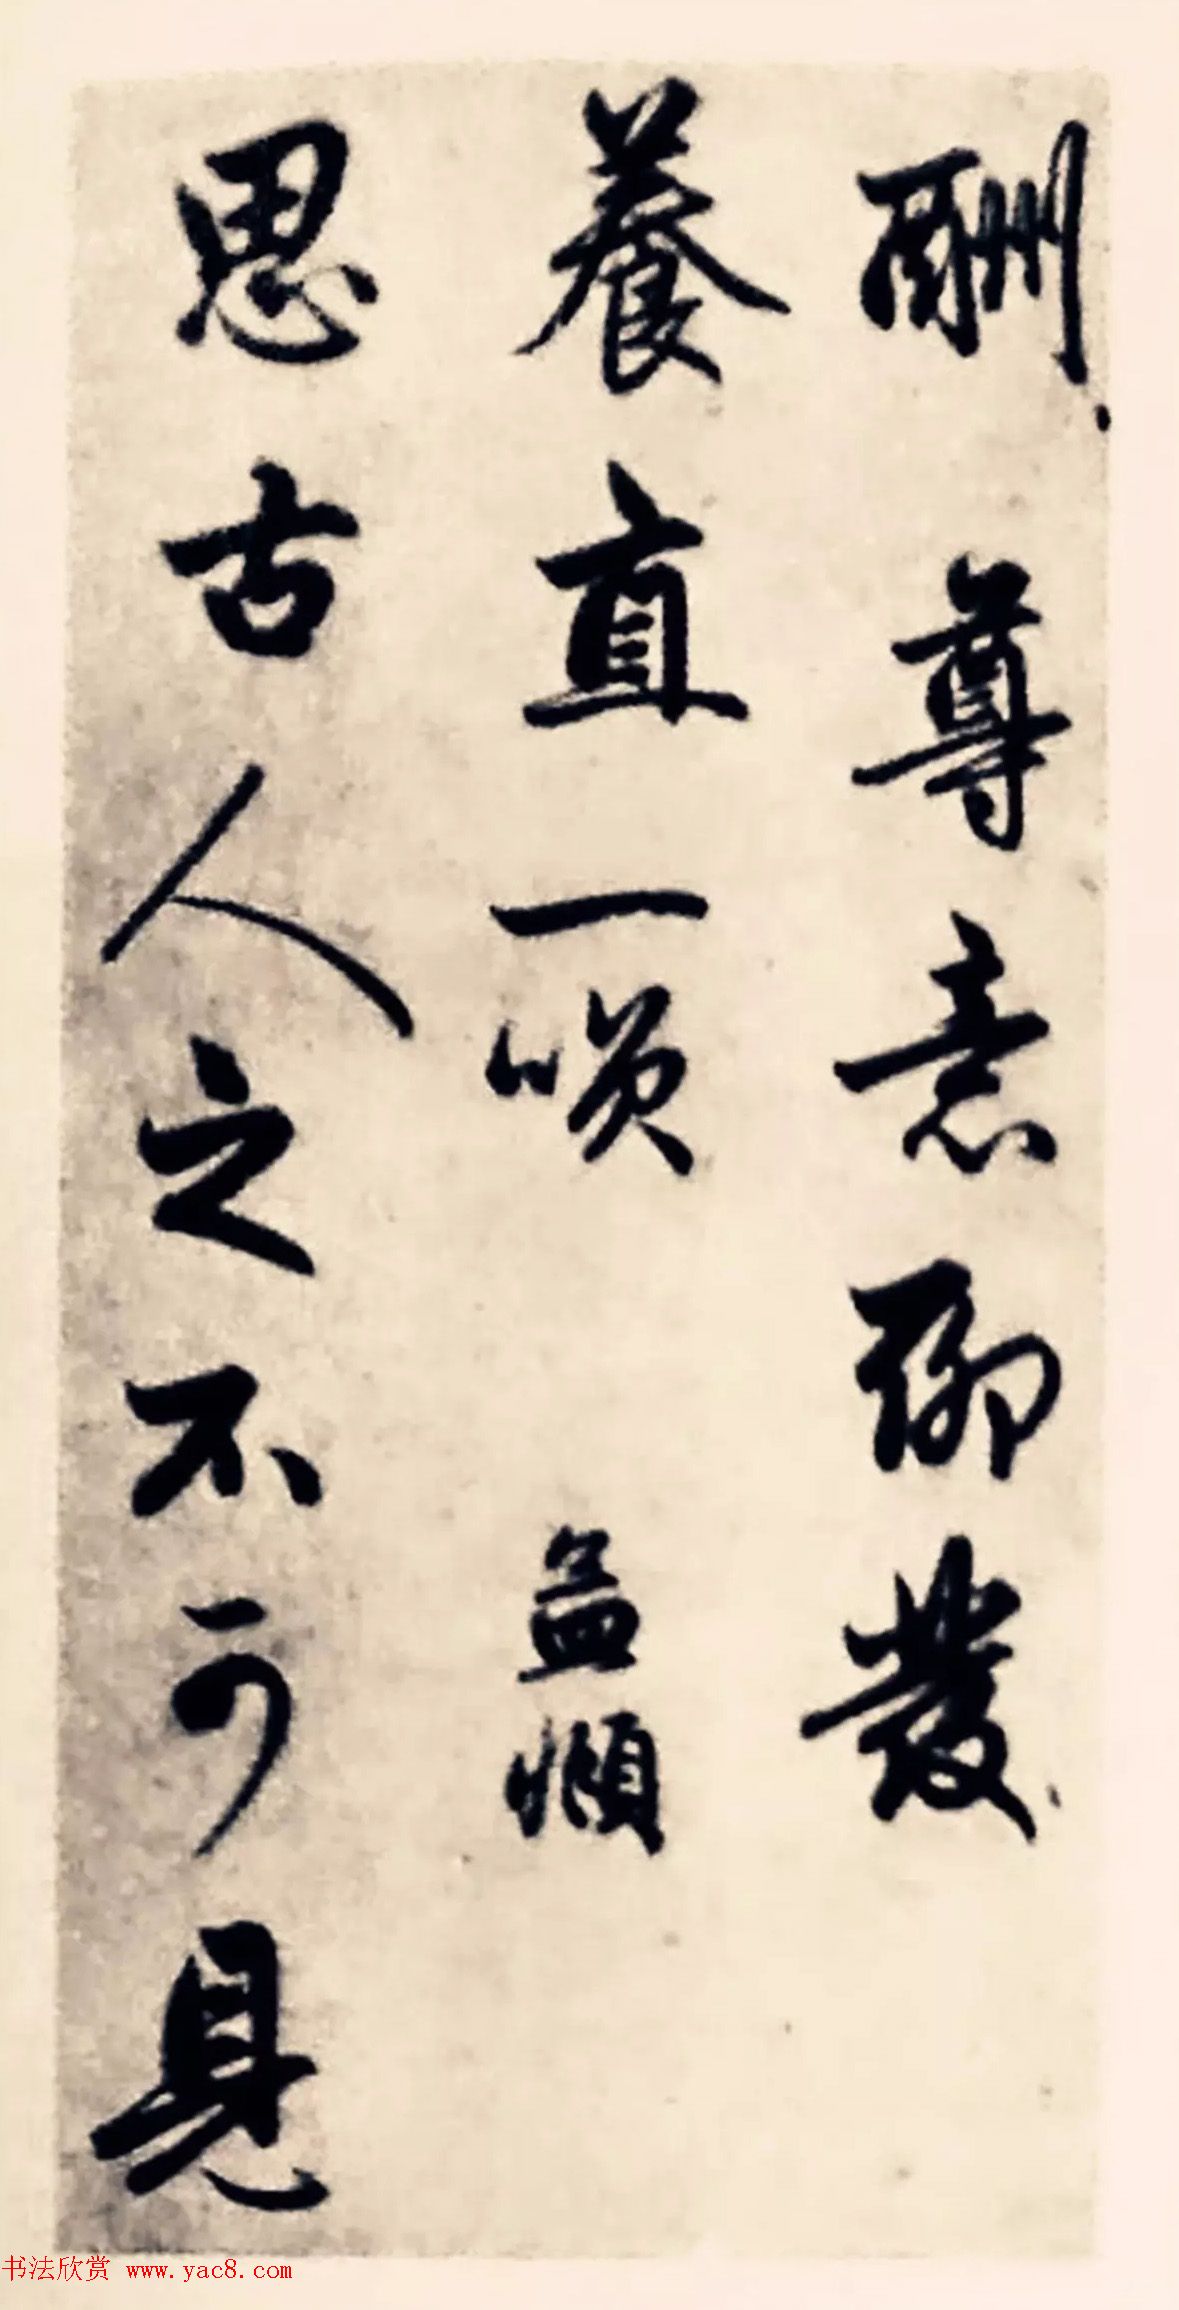 酬尊意聊發
養直一噗孟頫
思古人之不可見
书法欣赏 www.yac8.com